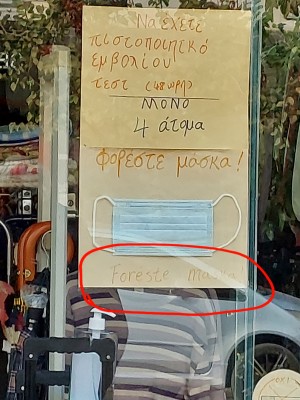 Να έχετε
πιστοποιητικό
εμβολίου
τεστ (48ωρη)
ΜΟΝΟ
4 άτομα
φορέστε μάσκα!
Foreste maska!
ΟΧΙ